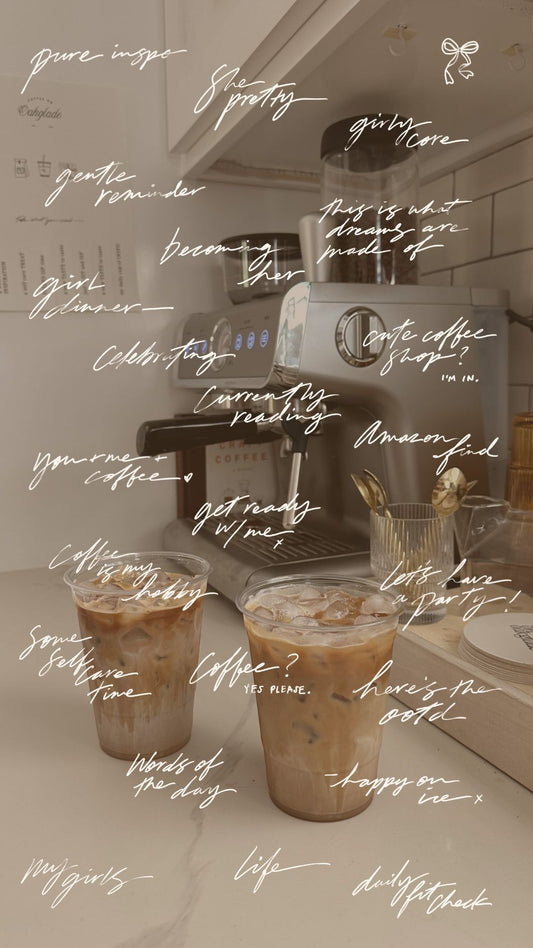 pure inspo
she
pretty
girly
core
Oakglade
gentle
reminder
this is what
dreams are
made of
becoming
her
girl
dinner
celebrating
cute coffee
shop?
I'M IN.
Currently
reading
Amazon
find
you + me +
coffee
COFFEE
get ready
w/me x
Coffee
is my
hobby
let's have
a party!
Some
self care
time
Coffee?
YES PLEASE.
here's the
ootd
Words of
the day
happy on
ice x
my girls
life
daily
fit check